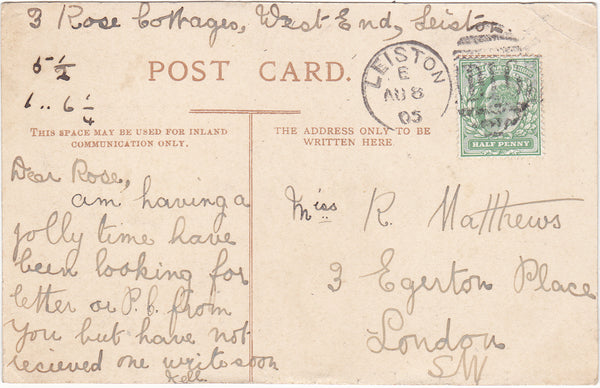 3 Rose Cottages, West End, Leiston.
5 1/2
1.. 6 1/4
POST CARD.
LEISTON
E
AU 8
05
HALF PENNY
THIS SPACE MAY BE USED FOR INLAND
COMMUNICATION ONLY.
THE ADDRESS ONLY TO BE
WRITTEN HERE.
Dear Rose,
am having a
jolly time have
been looking for
letter or P.C. from
you but have not
recieved one write soon
Miss R. Matthews
3 Egerton Place
London
SW